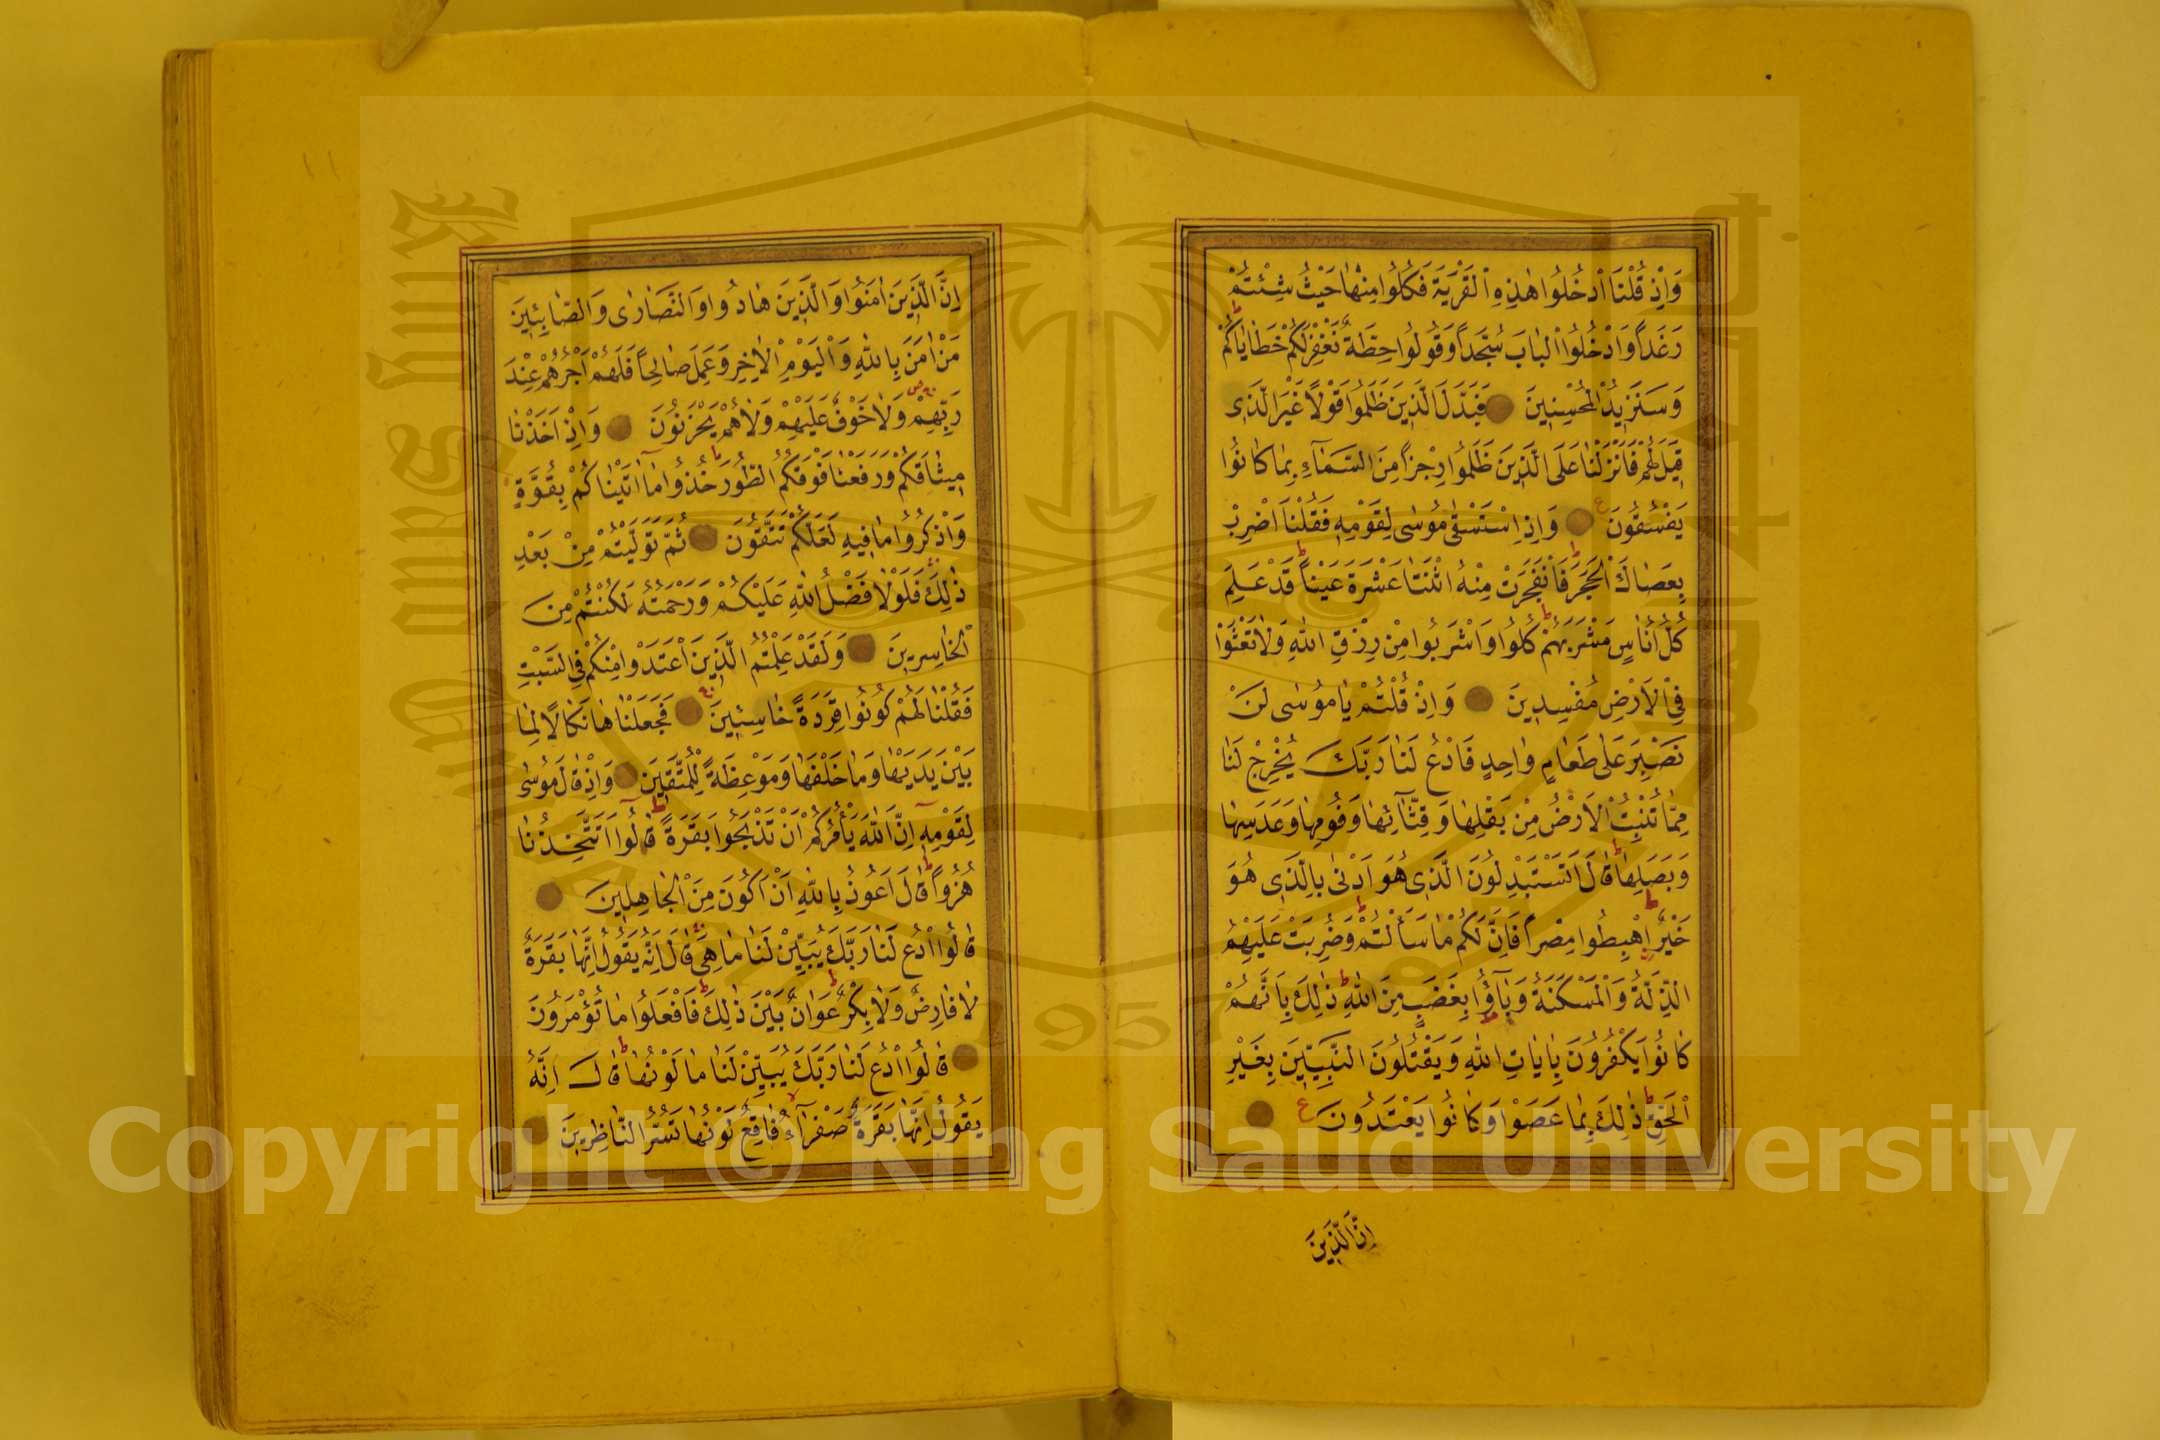 وَاِذْ قُلْنَا ادْخُلُوا هٰذِهِ الْقَرْيَةَ فَكُلُوا مِنْهَا حَيْثُ شِئْتُمْ
رَغَداً وَادْخُلُوا الْبَابَ سُجَّداً وَقُولُوا حِطَّةٌ نَغْفِرْ لَكُمْ خَطَايَاكُمْ
وَسَنَزِيدُ الْمُحْسِنِينَ فَبَدَّلَ الَّذِينَ ظَلَمُوا قَوْلاً غَيْرَ الَّذِى
قِيلَ لَهُمْ فَاَنْزَلْنَا عَلَى الَّذِينَ ظَلَمُوا رِجْزاً مِنَ السَّمَآءِ بِمَا كَانُوا
يَفْسُقُونَ ع وَاِذِ اسْتَسْقٰى مُوسٰى لِقَوْمِهِ فَقُلْنَا اضْرِبْ
بِعَصَاكَ الْحَجَرَ فَانْفَجَرَتْ مِنْهُ اثْنَتَا عَشْرَةَ عَيْناً قَدْ عَلِمَ
كُلُّ اُنَاسٍ مَشْرَبَهُمْ كُلُوا وَاشْرَبُوا مِنْ رِزْقِ اللهِ وَلَا تَعْثَوْا
فِى الْاَرْضِ مُفْسِدِينَ وَاِذْ قُلْتُمْ يَا مُوسٰى لَنْ
نَصْبِرَ عَلٰى طَعَامٍ وَاحِدٍ فَادْعُ لَنَا رَبَّكَ يُخْرِجْ لَنَا
مِمَّا تُنْبِتُ الْاَرْضُ مِنْ بَقْلِهَا وَقِثَّآئِهَا وَفُومِهَا وَعَدَسِهَا
وَبَصَلِهَا قَالَ اَتَسْتَبْدِلُونَ الَّذِى هُوَ اَدْنٰى بِالَّذِى هُوَ
خَيْرٌ اِهْبِطُوا مِصْراً فَاِنَّ لَكُمْ مَا سَاَلْتُمْ وَضُرِبَتْ عَلَيْهِمُ
الذِّلَّةُ وَالْمَسْكَنَةُ وَبَآؤُا بِغَضَبٍ مِنَ اللهِ ذٰلِكَ بِاَنَّهُمْ
كَانُوا يَكْفُرُونَ بِاٰيَاتِ اللهِ وَيَقْتُلُونَ النَّبِيِّينَ بِغَيْرِ
الْحَقِّ ذٰلِكَ بِمَا عَصَوْا وَكَانُوا يَعْتَدُونَ ع
اِنَّ الَّذِينَ
اِنَّ الَّذِينَ اٰمَنُوا وَالَّذِينَ هَادُوا وَالنَّصَارٰى وَالصَّابِئِينَ
مَنْ اٰمَنَ بِاللهِ وَالْيَوْمِ الْاٰخِرِ وَعَمِلَ صَالِحاً فَلَهُمْ اَجْرُهُمْ عِنْدَ
رَبِّهِمْ وَلَا خَوْفٌ عَلَيْهِمْ وَلَا هُمْ يَحْزَنُونَ وَاِذْ اَخَذْنَا
مِيثَاقَكُمْ وَرَفَعْنَا فَوْقَكُمُ الطُّورَ خُذُوا مَآ اٰتَيْنَاكُمْ بِقُوَّةٍ
وَاذْكُرُوا مَا فِيهِ لَعَلَّكُمْ تَتَّقُونَ ثُمَّ تَوَلَّيْتُمْ مِنْ بَعْدِ
ذٰلِكَ فَلَوْلَا فَضْلُ اللهِ عَلَيْكُمْ وَرَحْمَتُهُ لَكُنْتُمْ مِنَ
الْخَاسِرِينَ وَلَقَدْ عَلِمْتُمُ الَّذِينَ اعْتَدَوْا مِنْكُمْ فِى السَّبْتِ
فَقُلْنَا لَهُمْ كُونُوا قِرَدَةً خَاسِئِينَ فَجَعَلْنَاهَا نَكَالاً لِمَا
بَيْنَ يَدَيْهَا وَمَا خَلْفَهَا وَمَوْعِظَةً لِلْمُتَّقِينَ وَاِذْ قَالَ مُوسٰى
لِقَوْمِهِ اِنَّ اللهَ يَأْمُرُكُمْ اَنْ تَذْبَحُوا بَقَرَةً قَالُوا اَتَتَّخِذُنَا
هُزُواً قَالَ اَعُوذُ بِاللهِ اَنْ اَكُونَ مِنَ الْجَاهِلِينَ
قَالُوا ادْعُ لَنَا رَبَّكَ يُبَيِّنْ لَنَا مَا هِىَ قَالَ اِنَّهُ يَقُولُ اِنَّهَا بَقَرَةٌ
لَا فَارِضٌ وَلَا بِكْرٌ عَوَانٌ بَيْنَ ذٰلِكَ فَافْعَلُوا مَا تُؤْمَرُونَ
قَالُوا ادْعُ لَنَا رَبَّكَ يُبَيِّنْ لَنَا مَا لَوْنُهَا قَالَ اِنَّهُ
يَقُولُ اِنَّهَا بَقَرَةٌ صَفْرَآءُ فَاقِعٌ لَوْنُهَا تَسُرُّ النَّاظِرِينَ
1957
Copyright © King Saud University